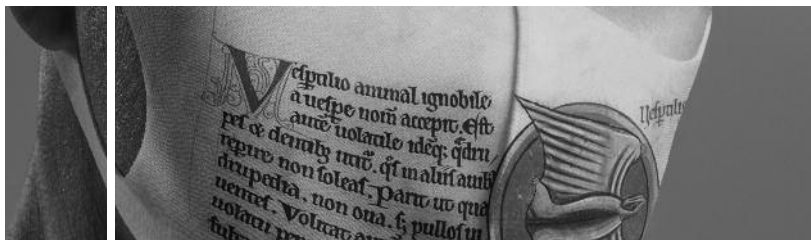 Vesptilio animal ignobile
a uespe nom̄ accepit. Est
autē uolatile idēq; q̄dru
pes dentib; utit̄. q̄s in aliis auib
repire non soleas. Parit ut qua
drupedia. non oua. s; pullos in
uentes. Volitat
uolatu
Uesptilio